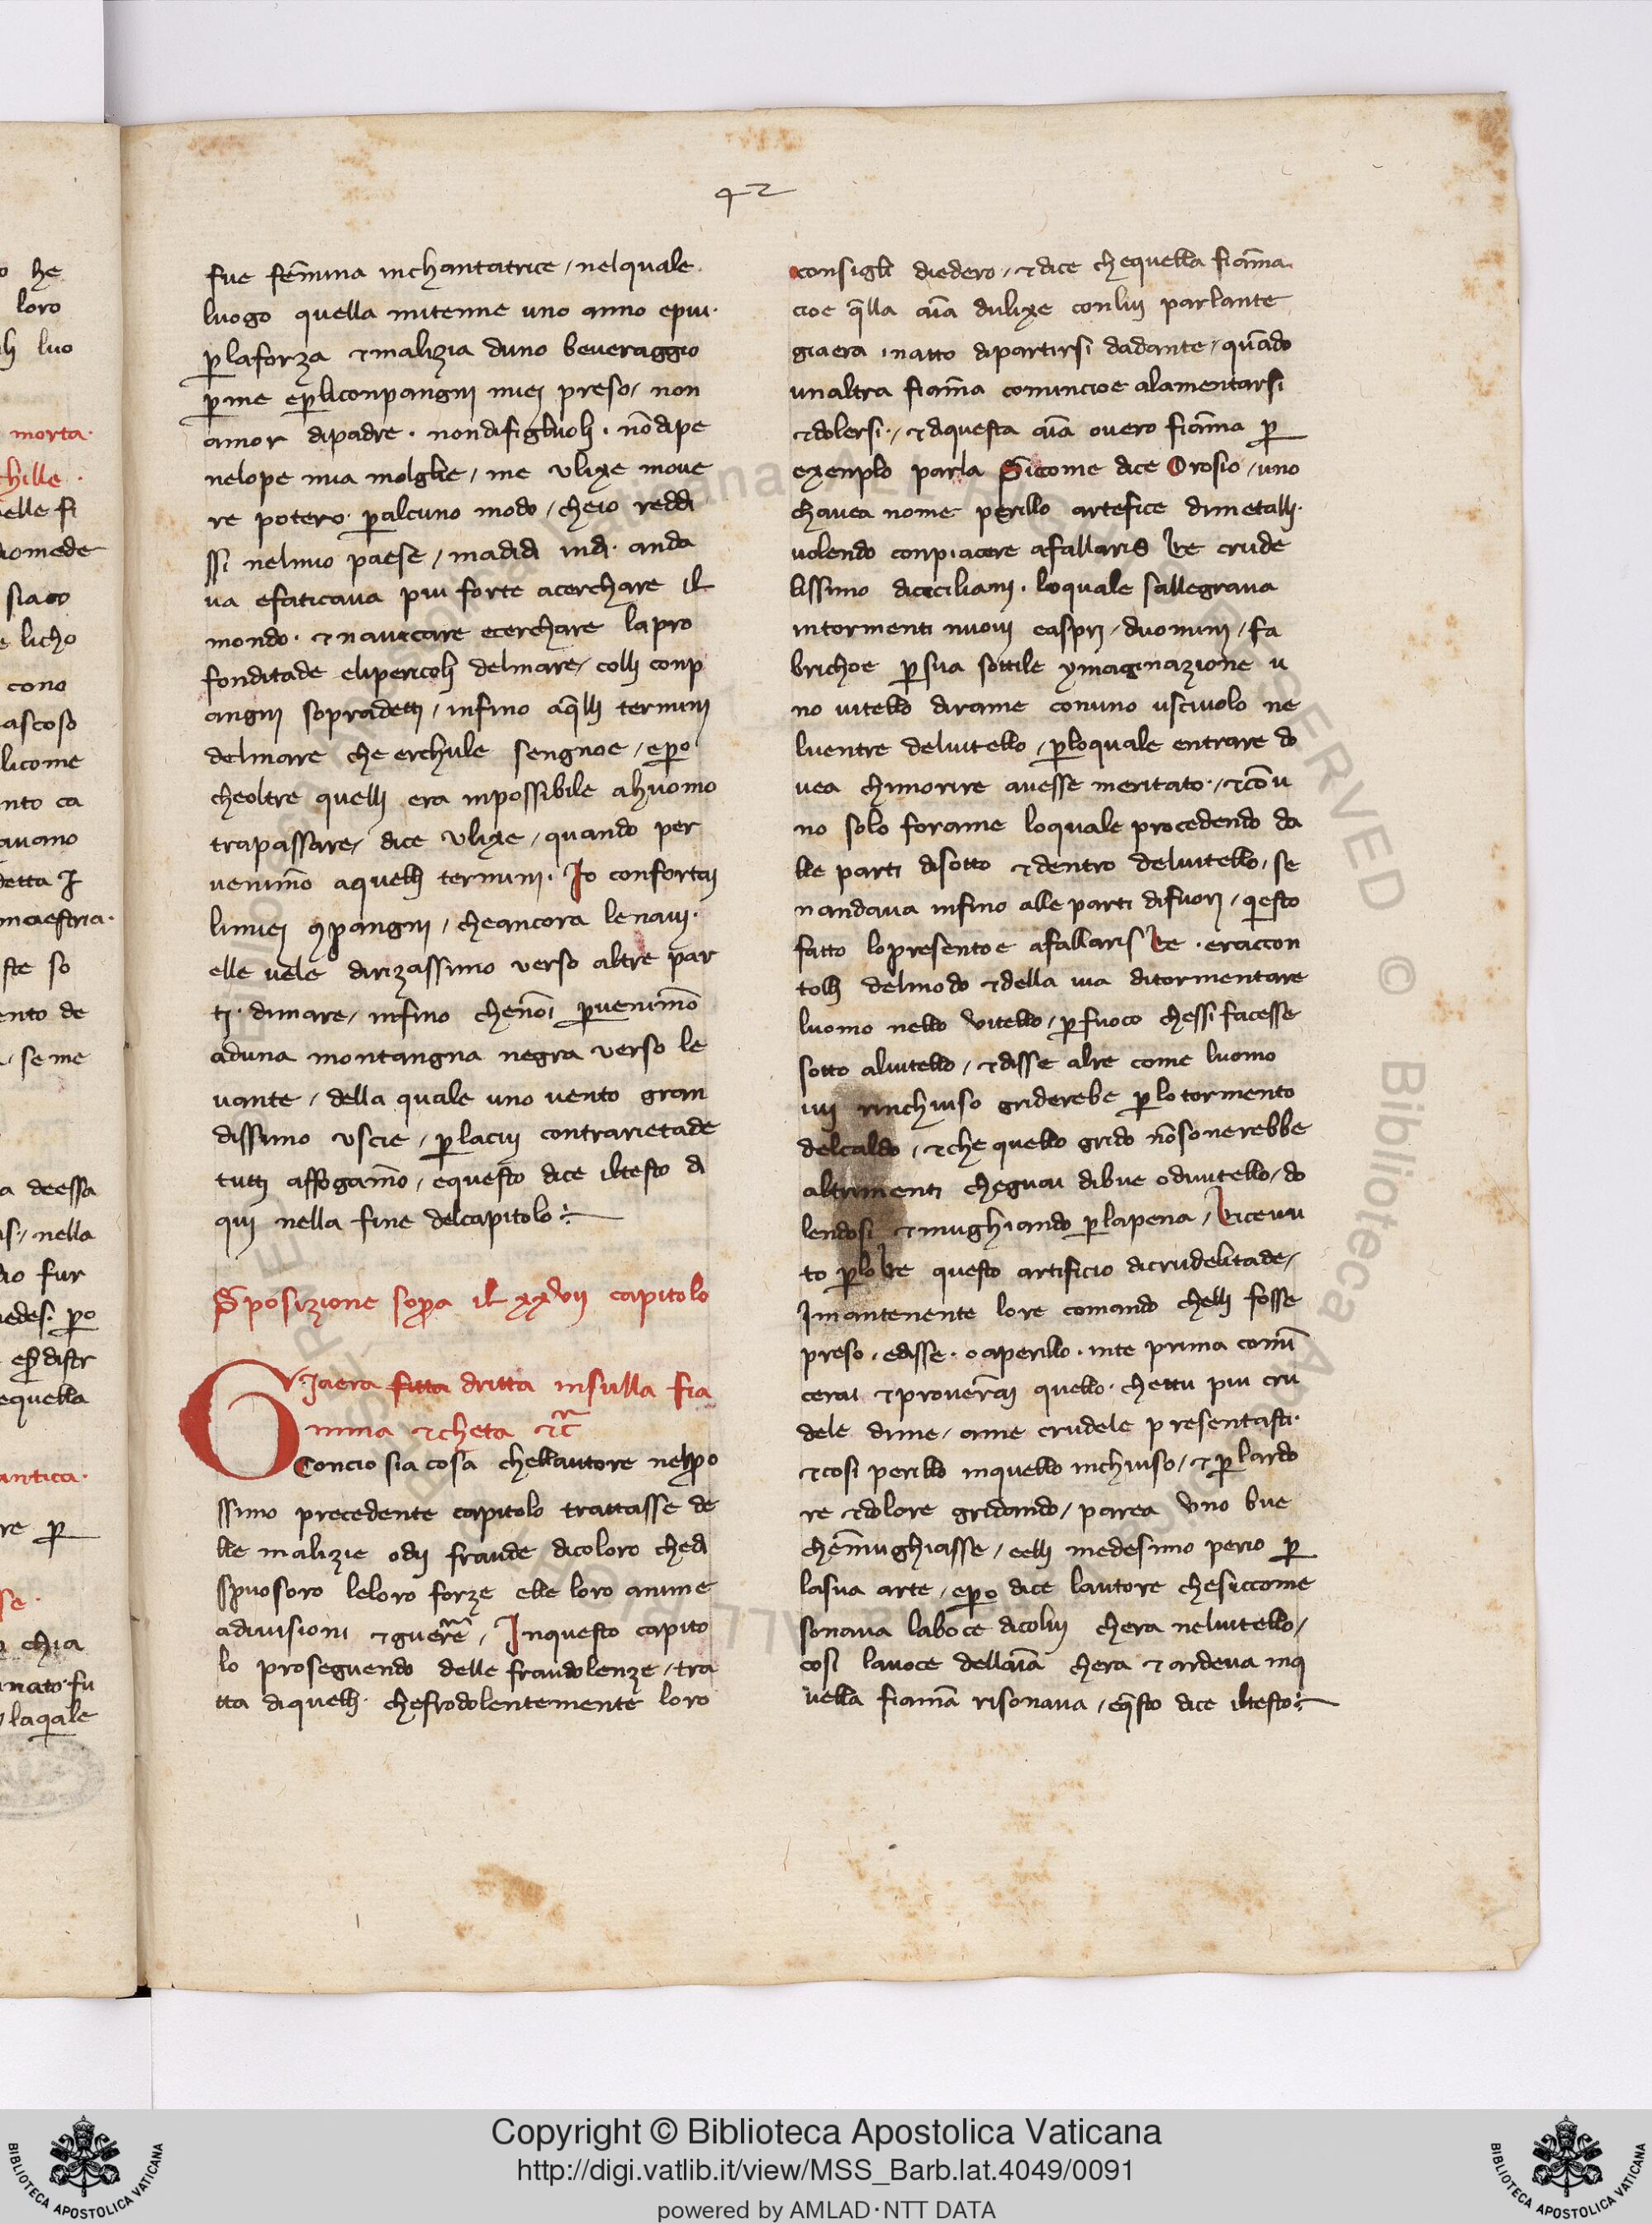 42
fue fēmina inchantatrice / nelquale
luogo quella mitenne uno anno epiu·
ꝑ laforza ⁊malizia duno beueraggio
ꝑme eꝑliconpangni miei preso / non
amor dipadre · nondifigluoli · nōdipe
nelope mia molglie / me vlixe moue
re potero · ꝑalcuno modo / cheio reddi
ssi nelmio paese / madidi indi · anda
ua efaticaua piu forte acerchare il
mondo · ⁊nauicare ecerchare lapro
fonditade elipericoli delmare / colli conp
angni sopradetti / infino aq̄lli termini
delmare che erchule sengnoe / eꝑo
cheoltre quelli era inpossibile ahuomo
trapassare / dice vlixe / quando per
uenimo aquelli termini · Io confortai
limiei ꝯpangni / cheancora lenaui ·
elle uele dirizassimo verso altre par
ti · dimare / infino chenōi ꝑuenimō
aduna montangna negra verso le
uante / della quale uno uento gran
dissimo vscie / ꝑ lacui contrarietade
tutti affogamō / equesto dice iltesto di
qui nella fine delcapitolo
Sposizione sopra il xxvij capitolo
GIaera fitta dritta insulla fia
mma ⁊cheta ⁊c̄
Concio sia cosa chellautore nelpo
ssimo precedente capitolo trattasse de
lle malizie odij fraude dicoloro chedi
spuosoro leloro forze elle loro anime
adiuisioni ⁊guerre / Inquesto capito
lo proseguendo delle fraudolenze / tra
tta diquelli · chefrodolentemente loro
consigli diedero / ⁊dice chequella fiāma
cioe q̄lla aīa dulixe conlui parlante
giaera inatto dipartirsi dadante / quādo
unaltra fiāma comincioe alamentarsi
⁊dolersi · / ⁊diquesta aīa ouero fiāma ꝑ
exenplo parla Siccome dice Orosio / uno
chauea nome perillo artefice dimetalli ·
uolendo conpiacere afallaris Re crude
lissimo diciciliani · loquale sallegraua
intormenti nuoui easpri / duomini / fa
brichoe ꝑ sua sottile ymaginazione u
no uitello dirame conuno usciuolo ne
luentre deluitello / ꝑloquale entrare do
uea chimorire auesse meritato · / ⁊cōu
no solo forame loquale procedendo da
lle parti disotto ⁊dentro deluitello / se
nandaua infino alle parti difuori / questo
fatto lopresentoe afallaris Re · eraccon
tolli delmodo ⁊della uia ditormentare
luomo nello vitello / ꝑ fuoco chessi facesse
sotto aluitello / ⁊disse alre come luomo
iui rinchiuso griderebe ꝑ lo tormento
delcaldo / ⁊che quello grido nōsonerebbe
altrimenti cheguai dibue odiuitello / do
lendosi ⁊mughiando ꝑ lapena / Riceuu
to ꝑloRe questo artificio dicrudelitade /
Imantenente lore comando chelli fosse
preso · edisse · o aperillo · inte prima comī
cerai ⁊prouerai quello · chettu piu cru
dele dime / ame crudele presentasti ·
⁊cosi perillo inquello inchiuso / ⁊ꝑ lardo
re ⁊dolore gridando / parea vno bue
chēmughiasse / eelli medesimo perio ꝑ
lasua arte / eꝑo dice lautore chesiccome
sonaua laboce dicolui chera neluitello /
cosi lauoce dellaīa chera ⁊ardeua inq
uella fiamā risonaua / eq̄sto dice iltesto
Copyright © Biblioteca Apostolica Vaticana
http://digi.vatlib.it/view/MSS_Barb.lat.4049/0091
powered by AMLAD·NTT DATA
BIBLIOTECA APOSTOLICA VATICANA
BIBLIOTECA APOSTOLICA VATICANA